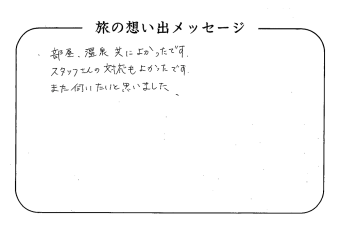 旅の想い出メッセージ
・部屋、温泉 共によかったです。
スタッフさんの対応もよかったです。
また伺いたいと思いました。